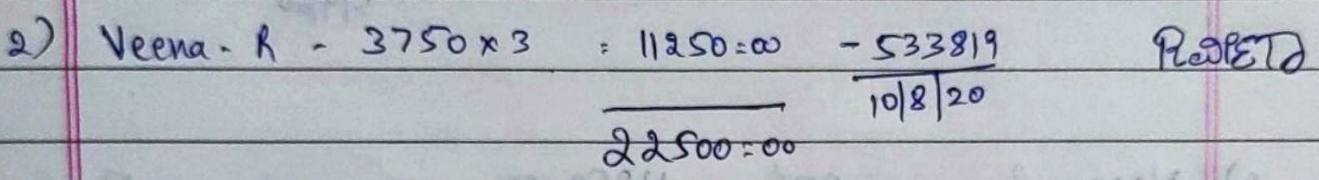 2) Veena - R - 3750 x 3 = 11250=00 - 533819
10/8/20
22500=00